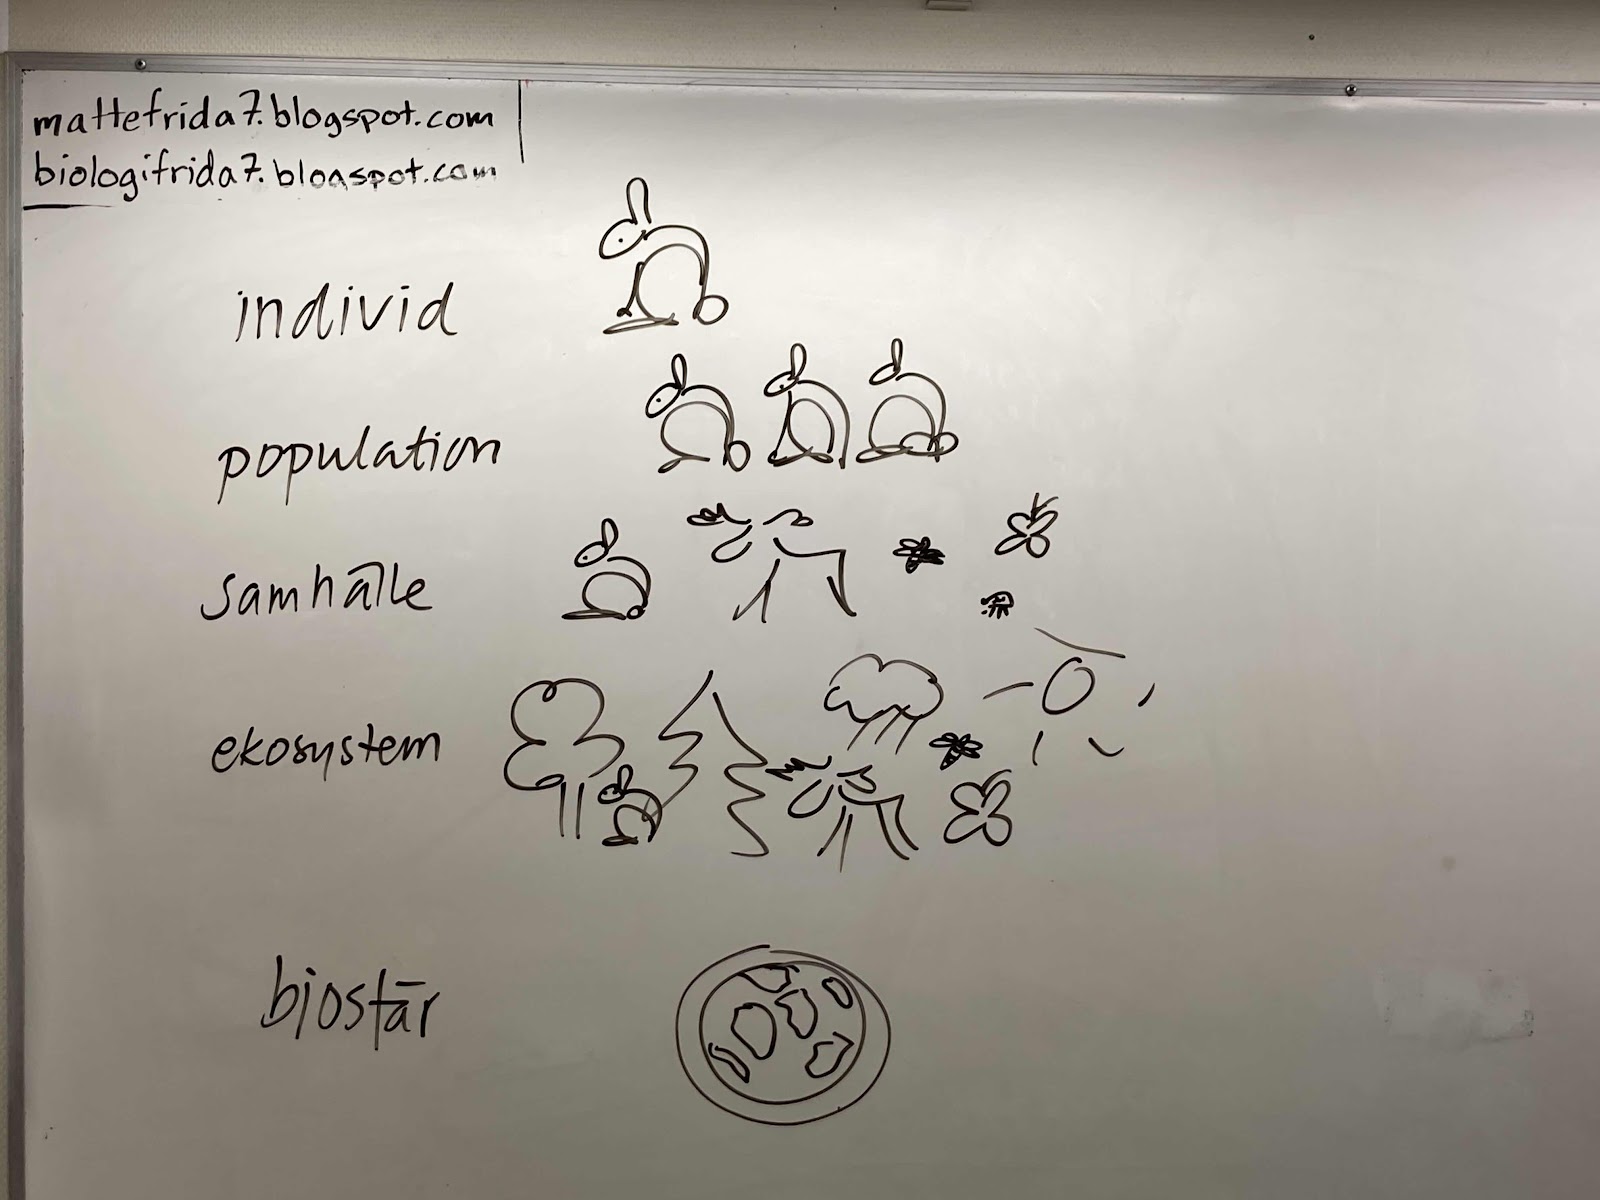 mattefrida7.blogspot.com
biologifrida7.blogspot.com
individ
population
samhälle
ekosystem
biosfär